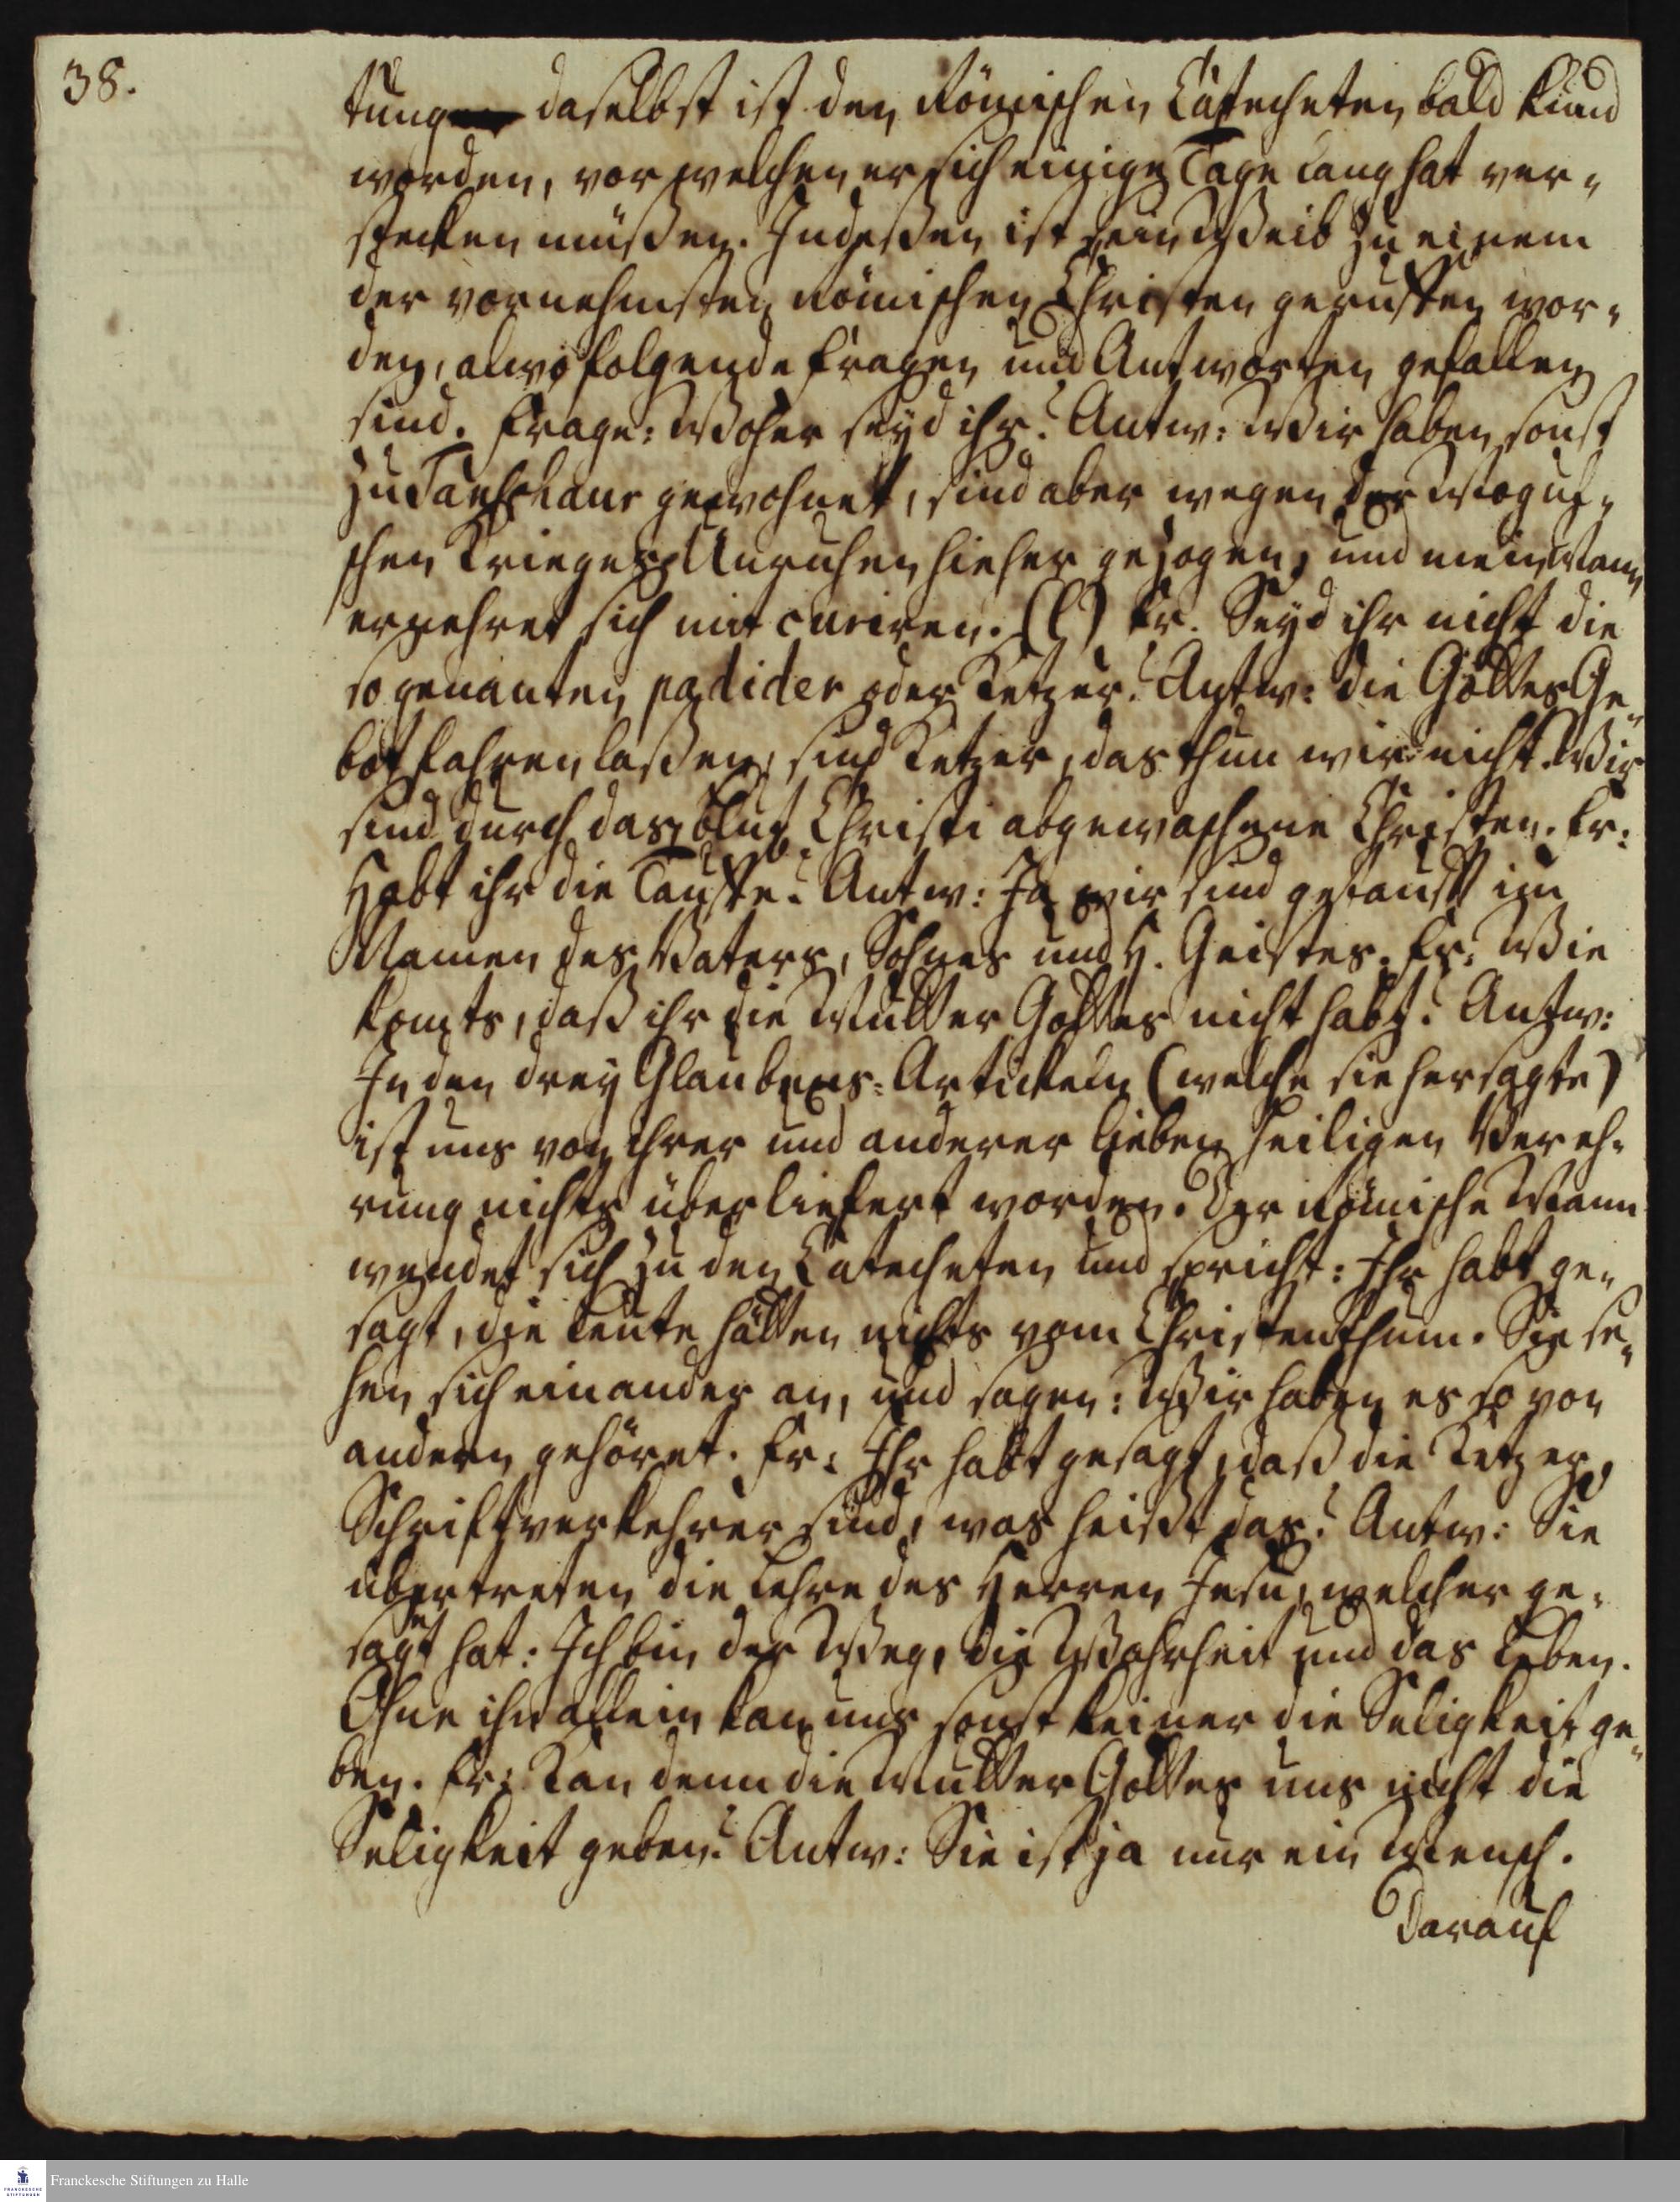 38.
tung daselbst ist den Römischen Catecheten bald kund
worden, vor welchen er sich einige Tage lang hat ver-
stecken müßen. Indeßen ist sein Weib zu einem
der vornehmsten Römischen Christen geruffen wor-
den, alwo folgende Fragen und Antworten gefallen
sind. Frage: Woher seyd ihr? Antw: Wir haben sonst
zu Tanschaur gewohnet, sind aber wegen der Mogul-
schen Krieges Unruhen hieher gezogen, und mein Mann
ernehret sich mit curiren. (l) Fr. Seyd ihr nicht die
so genanten padider oder Ketzer? Antw: die Gottes Ge-
bot fahren laßen, sind Ketzer, das thun wir nicht. Wir
sind durch das Blut Christi abgewaschene Christen. Fr:
Habt ihr die Tauffe? Antw: Ja wir sind getaufft im
Namen des Vaters, Sohnes und H. Geistes. Fr: Wie
komts, daß ihr die Mutter Gottes nicht habt? Antw:
In den drey Glaubens-Artickeln (welche sie hersagte)
ist uns von ihrer und anderer lieben Heiligen Vereh-
rung nichts überliefert worden. Der Römische Mann
wendet sich zu den Catecheten und spricht: Ihr habt ge-
sagt, die Leute hätten nichts vom Christenthum. Sie se-
hen sich einander an, und sagen: Wir haben es so von
andern gehöret. Fr: Ihr habt gesagt, daß die Ketzer,
Schriftverkehrer sind, was heißt das? Antw: Sie
übertreten die Lehre des Herren Jesu, welcher ge-
saget hat: Ich bin der Weg, die Wahrheit und das Leben.
Ohne ihn allein kan uns sonst keiner die Seligkeit ge-
ben. Fr: Kan denn die Mutter Gottes uns nicht die
Seligkeit geben? Antw: Sie ist ja nur ein Mensch.
Darauf
Franckesche Stiftungen zu Halle
FRANCKESCHE
STIFTUNGEN